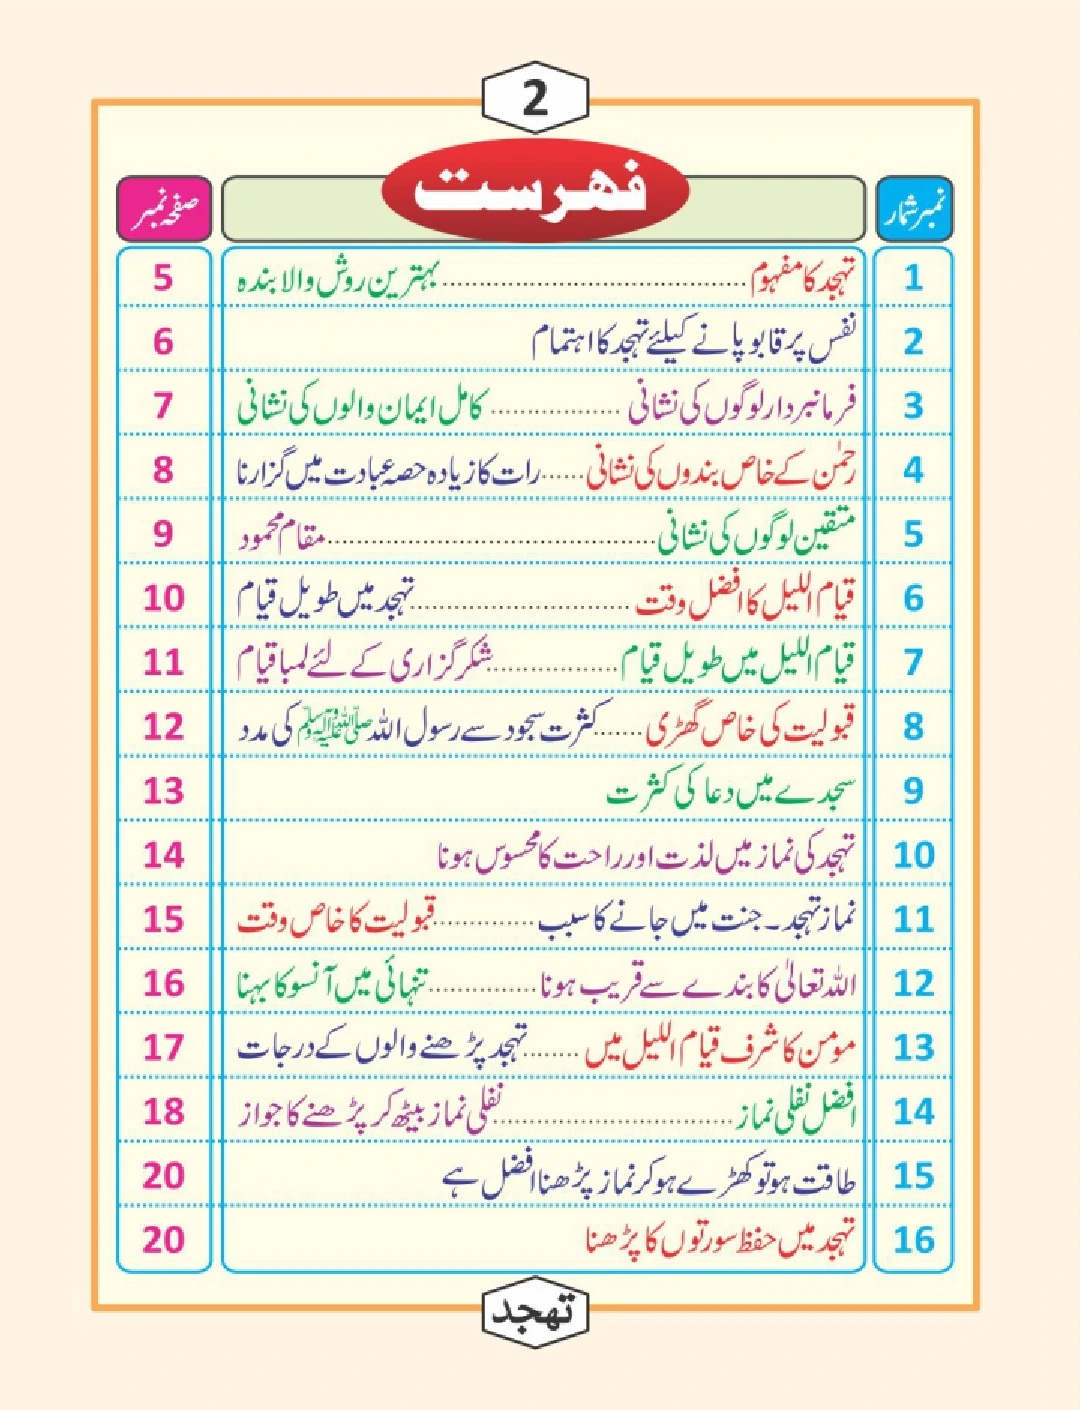 2
نمبر شمار فہرست صفحہ نمبر
1 تہجد کا مفہوم ........................................ بہترین روش والا بندہ 5
2 نفس پر قابو پانے کیلئے تہجد کا اہتمام 6
3 فرمانبردار لوگوں کی نشانی ................. کامل ایمان والوں کی نشانی 7
4 رحمٰن کے خاص بندوں کی نشانی ...... رات کا زیادہ حصۂ عبادت میں گزارنا 8
5 متقین لوگوں کی نشانی ........................................... مقام محمود 9
6 قیام اللیل کا افضل وقت ............................. تہجد میں طویل قیام 10
7 قیام اللیل میں طویل قیام ................. شکر گزاری کے لئے لمبا قیام 11
8 قبولیت کی خاص گھڑی ....... کثرت سجود سے رسول اللہ ﷺ کی مدد 12
9 سجدے میں دعا کی کثرت 13
10 تہجد کی نماز میں لذت اور راحت کا محسوس ہونا 14
11 نماز تہجد۔ جنت میں جانے کا سبب ............. قبولیت کا خاص وقت 15
12 اللہ تعالیٰ کا بندے سے قریب ہونا .............. تنہائی میں آنسو کا بہنا 16
13 مؤمن کا شرف قیام اللیل میں ........ تہجد پڑھنے والوں کے درجات 17
14 افضل نفلی نماز ................................ نفلی نماز بیٹھ کر پڑھنے کا جواز 18
15 طاقت ہو تو کھڑے ہو کر نماز پڑھنا افضل ہے 20
16 تہجد میں حفظ سورتوں کا پڑھنا 20
تہجد